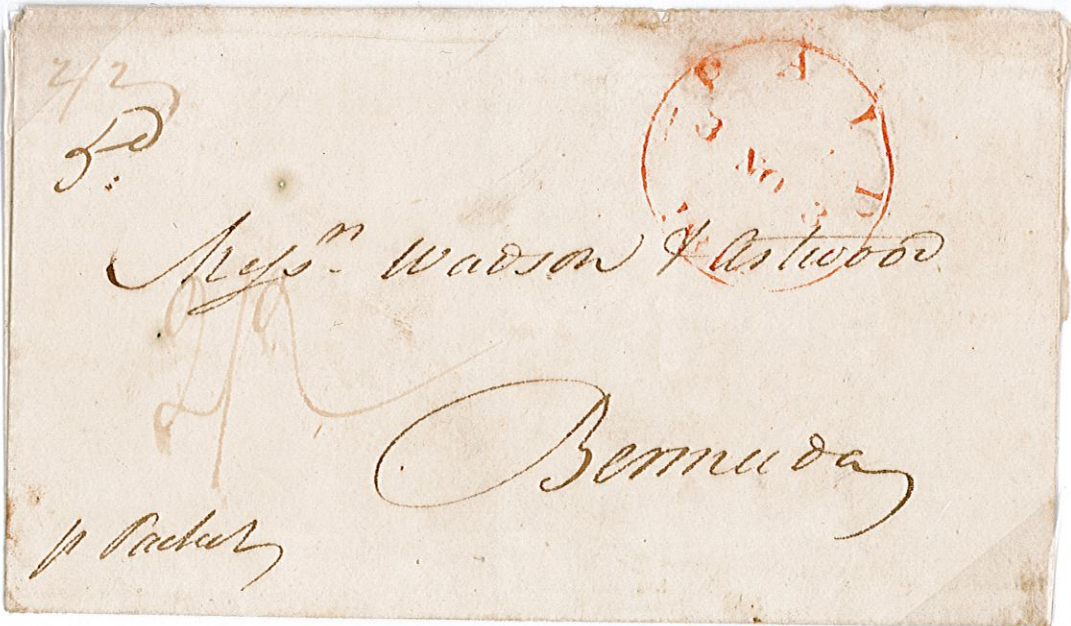 2/2
5d
PAID
NO 3
Messrs. Wadson & Astwood
2/2
Bermuda
p Packet